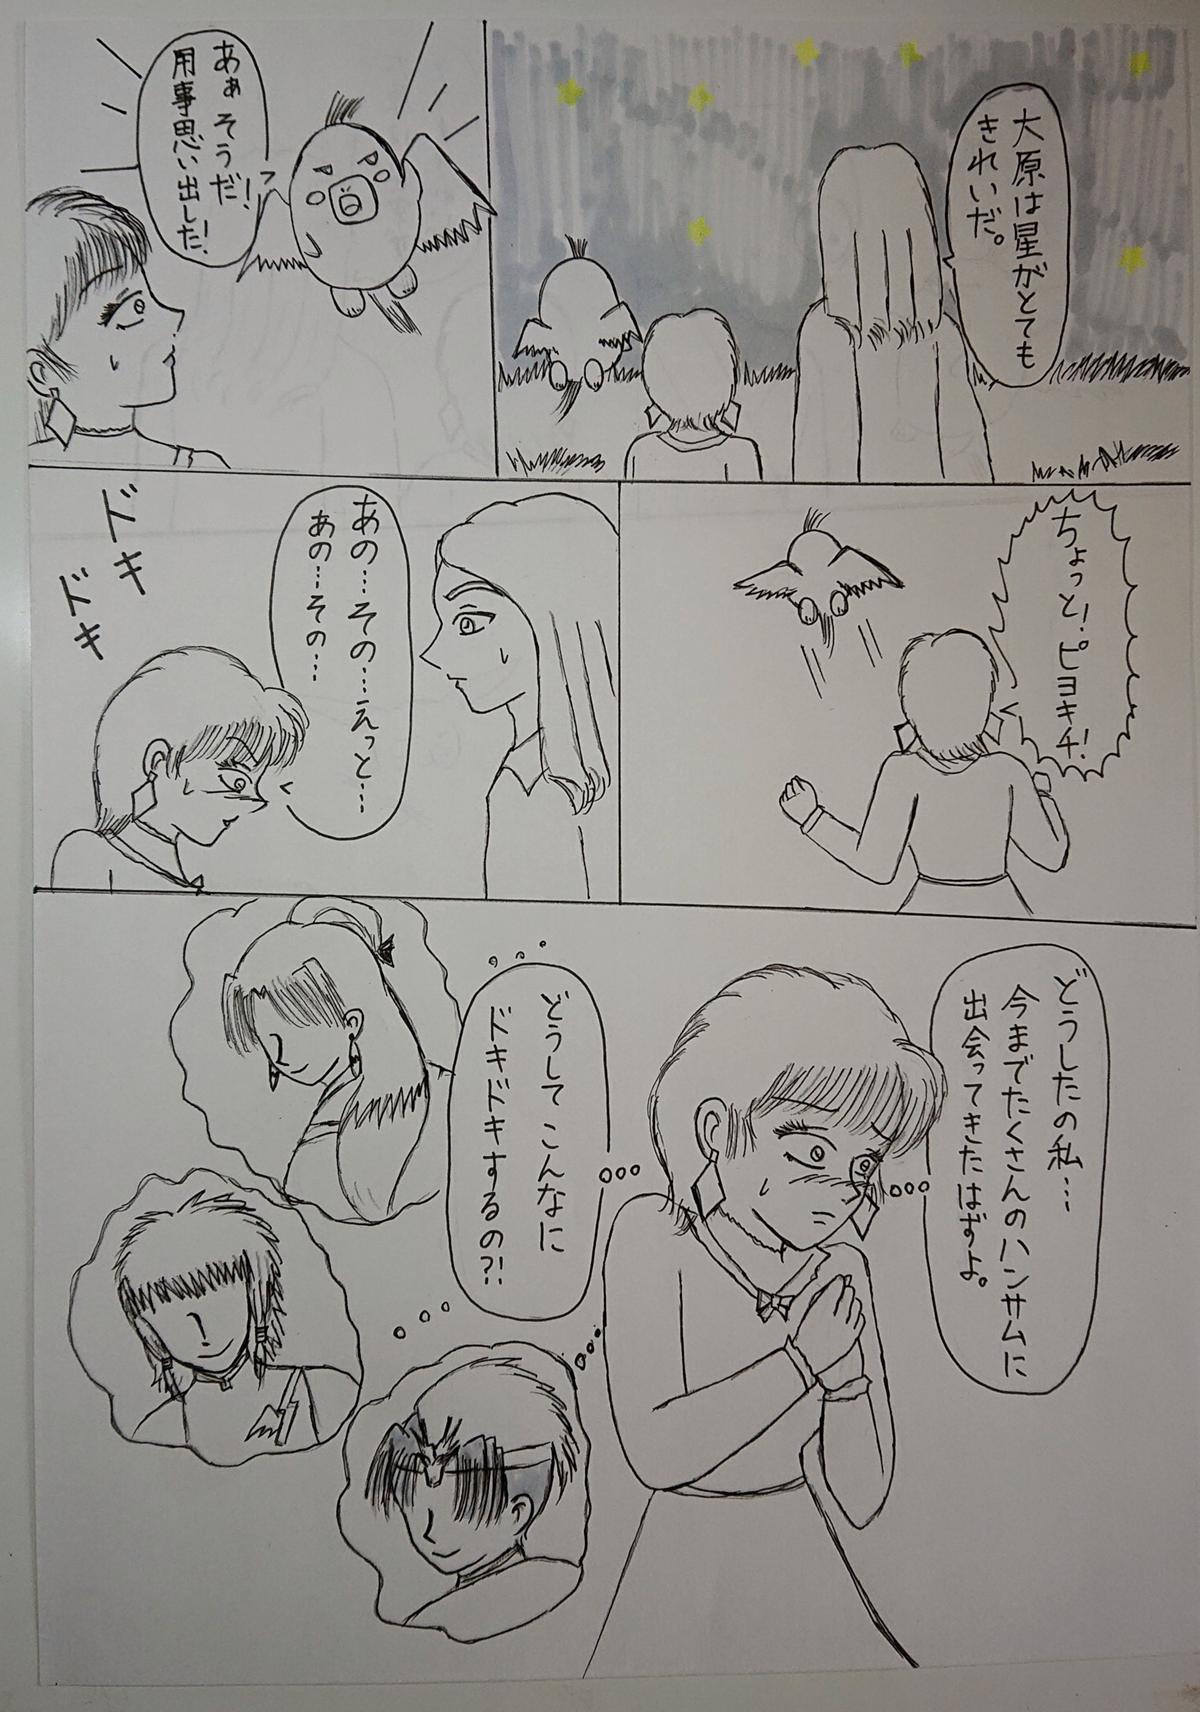 大原は星がとても
きれいだ。
あぁそうだ!
用事思い出した!
ちょっと!ピヨキチ!
あの…その…えっと…
あの…その…
ドキ
ドキ
どうしたの私…
今までたくさんのハンサムに
出会ってきたはずよ。
どうしてこんなに
ドキドキするの?!